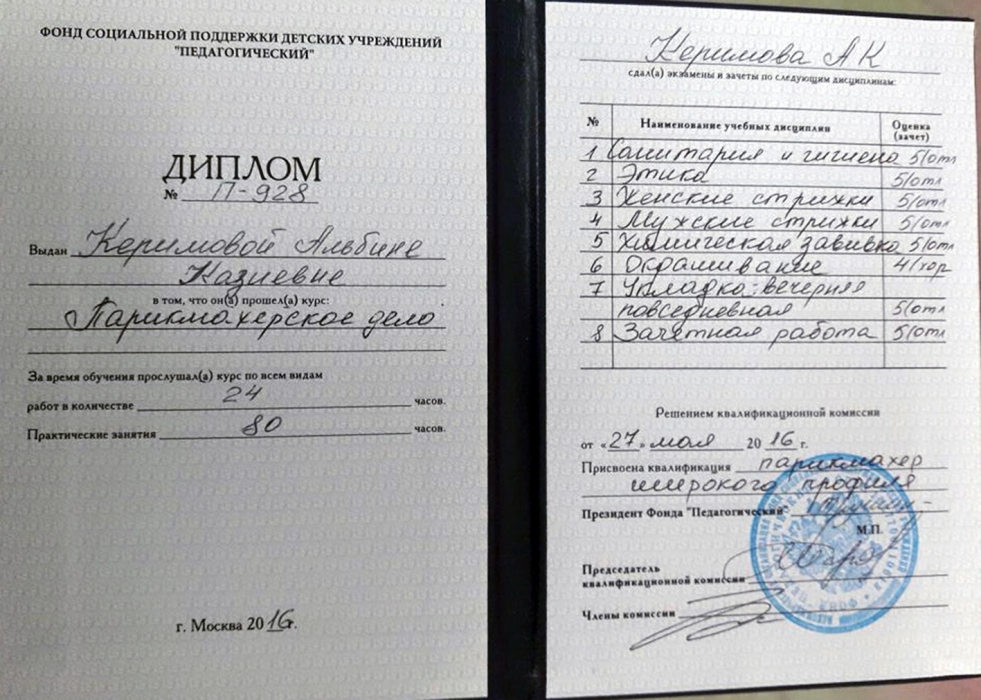 ФОНД СОЦИАЛЬНОЙ ПОДДЕРЖКИ ДЕТСКИХ УЧРЕЖДЕНИЙ
"ПЕДАГОГИЧЕСКИЙ"
ДИПЛОМ
№ П-928
Выдан Керимовой Альбине
Казиевне
в том, что он(а) прошел(а) курс:
Парикмахерское дело
За время обучения прослушал(а) курс по всем видам
работ в количестве 24 часов.
Практические занятия 80 часов.
г. Москва 2016г.
Керимова А К
сдал(а) экзамены и зачеты по следующим дисциплинам:
№ Наименование учебных дисциплин Оценка (зачет)
1 Санитария и гигиена 5/отл
2 Этика 5/отл
3 Женские стрижки 5/отл
4 Мужские стрижки 5/отл
5 Химическая завивка 5/отл
6 Окрашивание 4/хор
7 Укладка: вечерняя
повседневная 5/отл
8 Зачетная работа 5/отл
Решением квалификационной комиссии
от «27» мая 2016 г.
Присвоена квалификация парикмахер
широкого профиля
Президент Фонда "Педагогический"
М.П.
Председатель
квалификационной комиссии
Члены комиссии